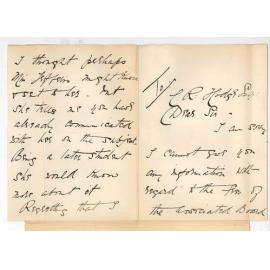 I thought perhaps
Miss might have
sent to her. But
she tells me you have
already communicated
with her on the subject.
Being a later student
she would know
more about it
Regretting that I
To/
R
Dear Sir -
I am sorry
I cannot give you
any information with
regard to the of
the Associated Board